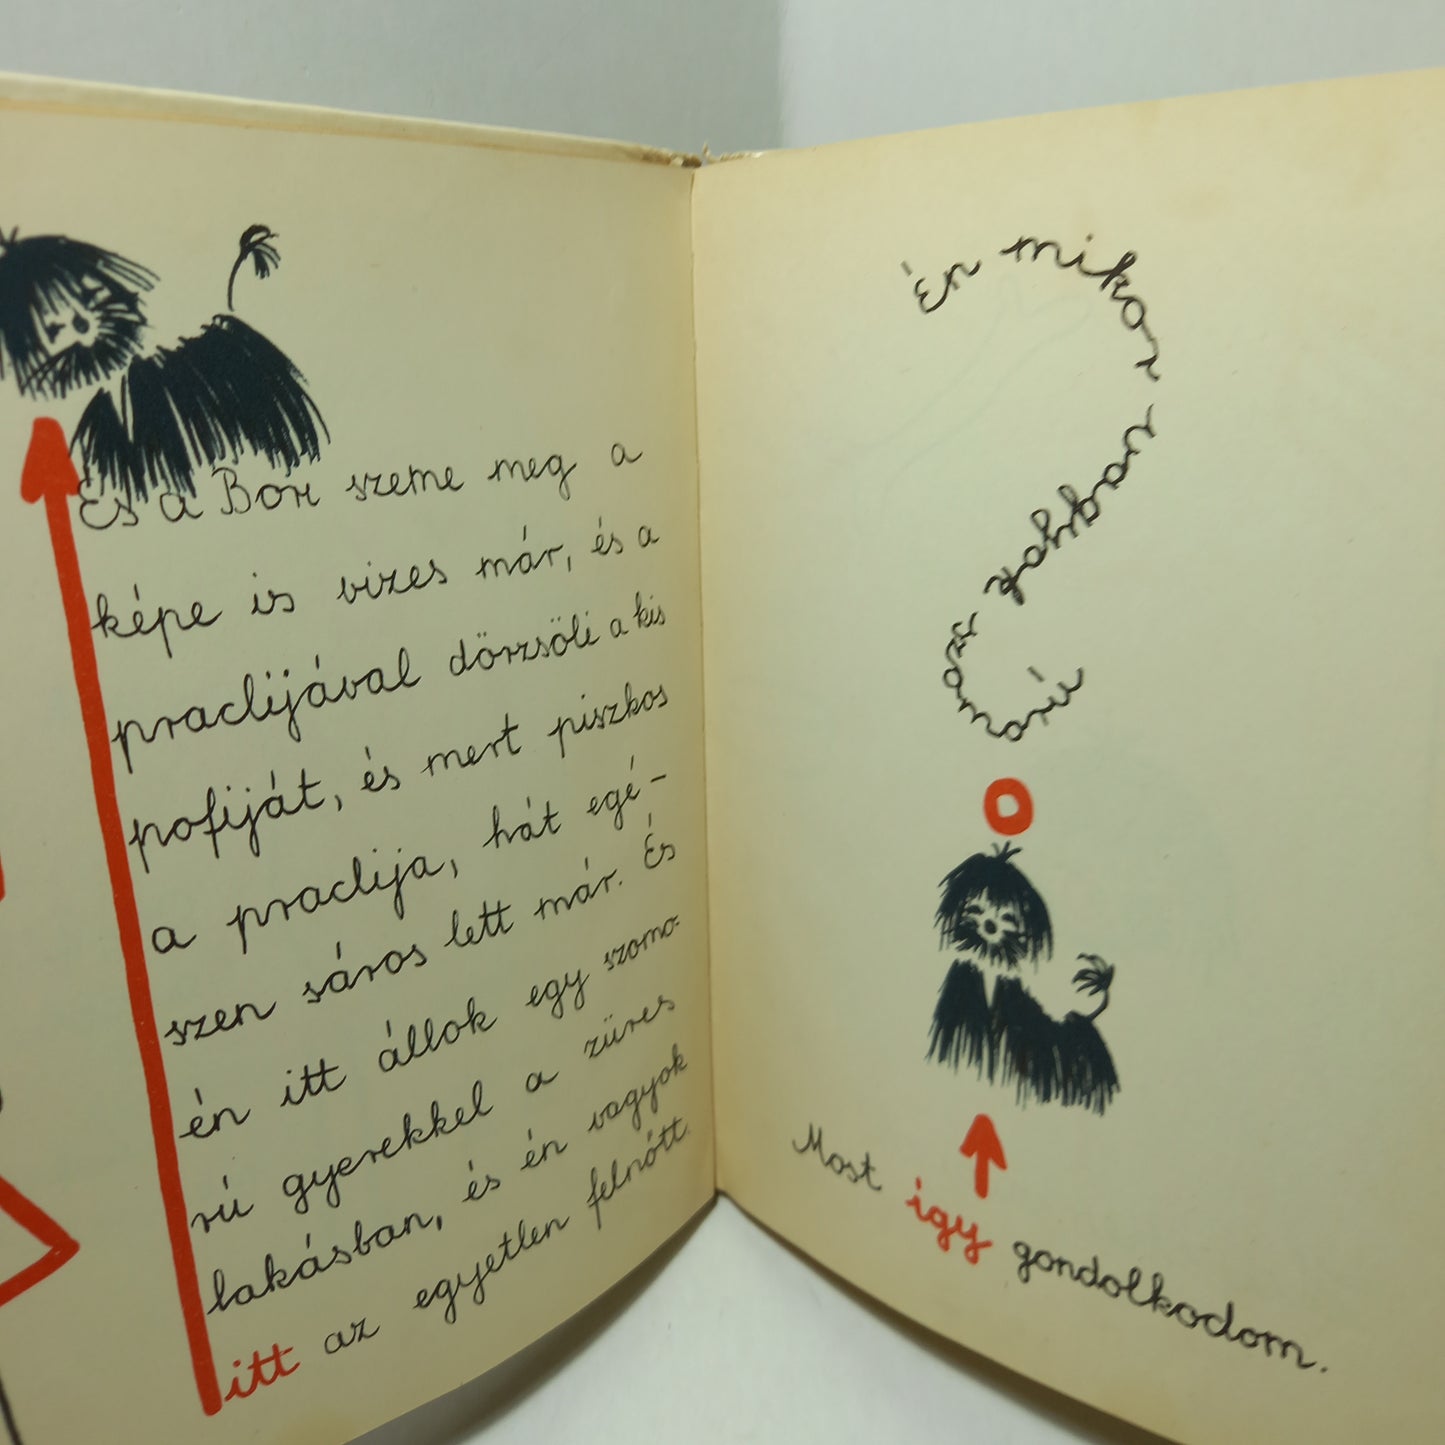 És a Bori szeme meg a
képe is vizes már, és a
praclijával dörzsöli a kis
pofiját, és mert piszkos
a praclija, hát egé-
szen sáros lett már. És
én itt állok egy szomo-
rú gyerekkel a züres
lakásban, és én vagyok
itt az egyetlen felnőtt.
Én mikor vagyok szomorú
Most így gondolkodom.